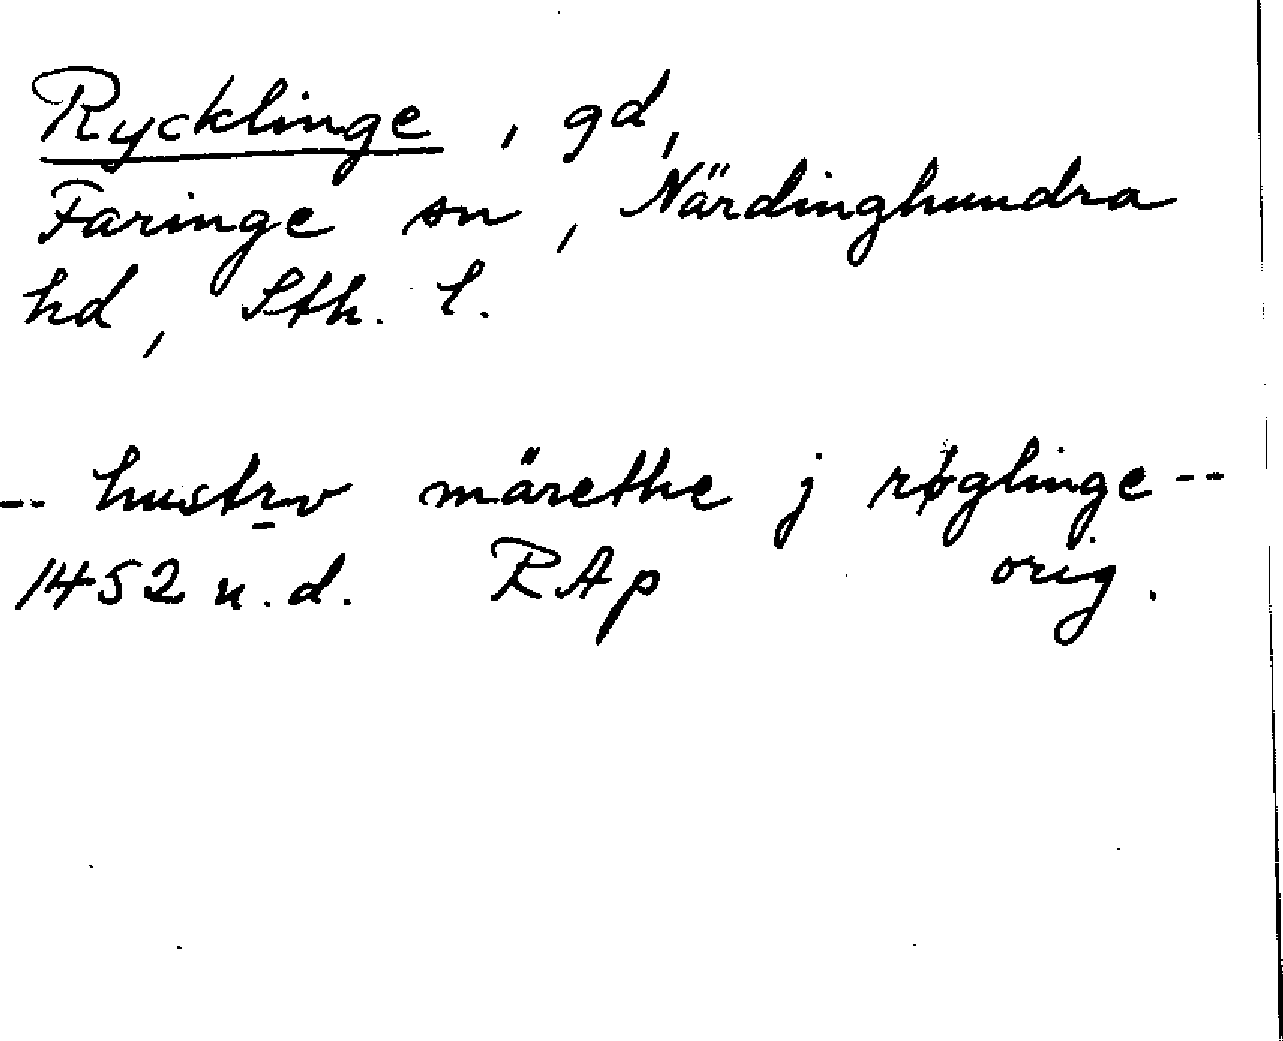 Rycklinge, gd,
Faringe sn, Närdinghundra
hd, Sth. l.
-- hustrv märethe j røglinge --
1452 u.d. RAp orig.